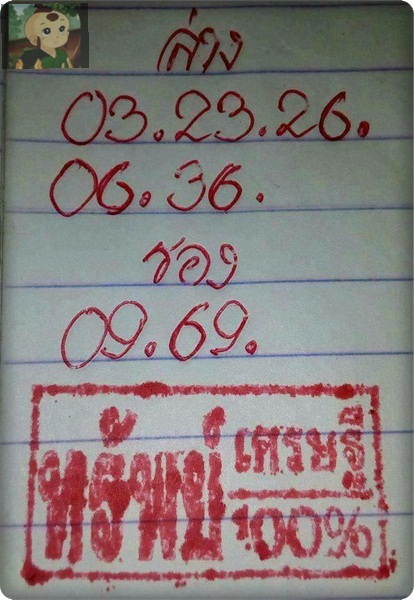 ล่าง
03.23.26.
06.36.
รอง
09.69.
ทรัพย์
เศรษฐี
100%